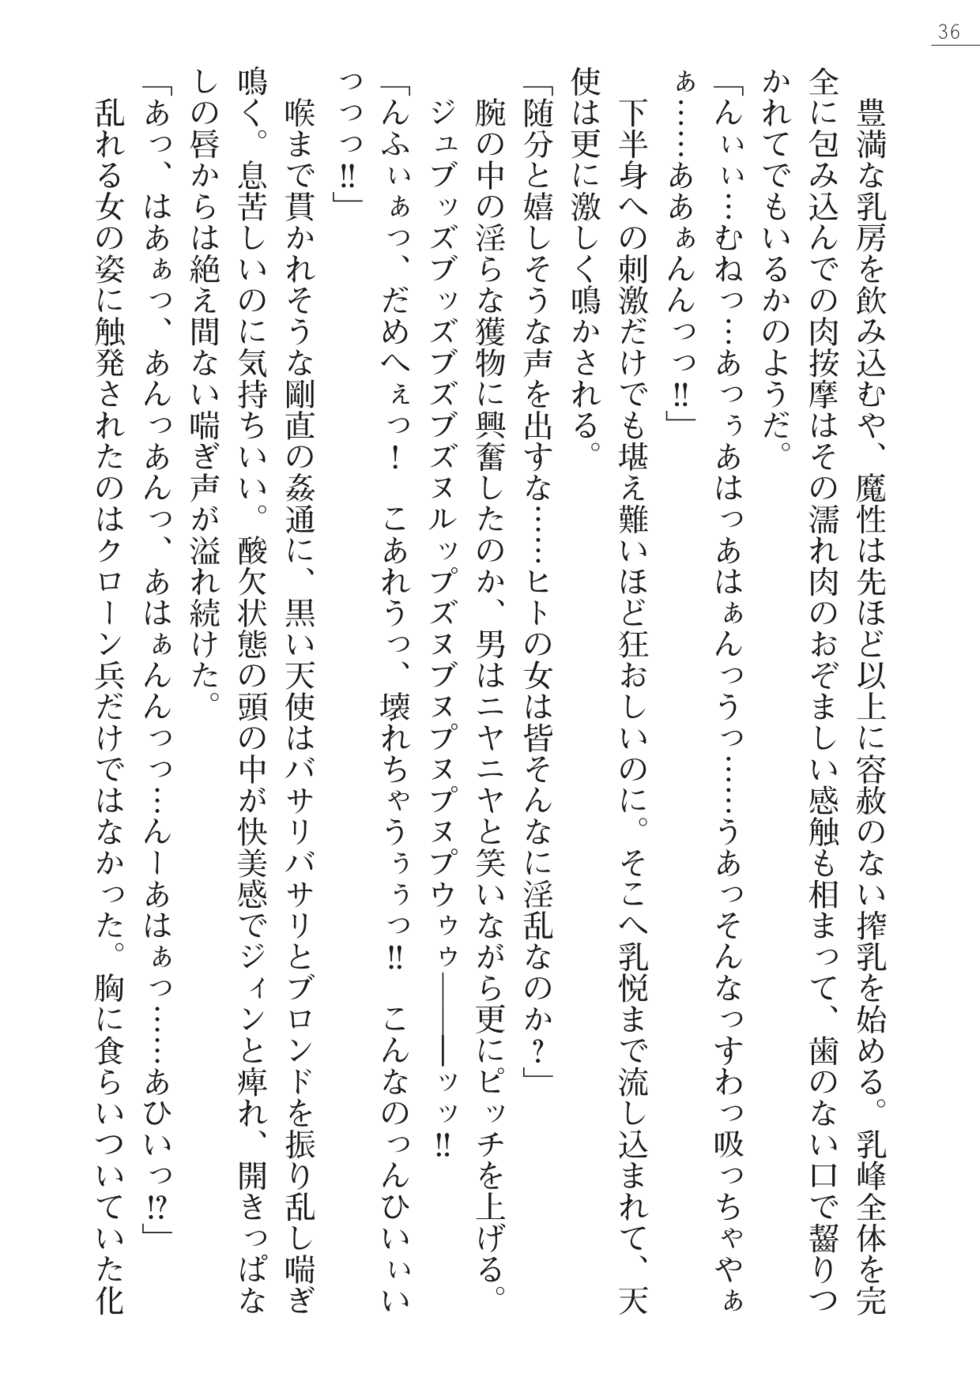 36
　豊満な乳房を飲み込むや、魔性は先ほど以上に容赦のない搾乳を始める。乳峰全体を完
全に包み込んでの肉按摩はその濡れ肉のおぞましい感触も相まって、歯のない口で齧りつ
かれてでもいるかのようだ。
「んぃぃ…むねっ…あっぅあはっあはぁんっうっ……うあっそんなっすわっ吸っちゃやぁ
ぁ……ああぁんんっっ‼」
　下半身への刺激だけでも堪え難いほど狂おしいのに。そこへ乳悦まで流し込まれて、天
使は更に激しく鳴かされる。
「随分と嬉しそうな声を出すな……ヒトの女は皆そんなに淫乱なのか？」
　腕の中の淫らな獲物に興奮したのか、男はニヤニヤと笑いながら更にピッチを上げる。
　ジュブッズブッズブズブズヌルップズヌブヌプヌプヌプウゥゥ――ッッ‼
「んふぃぁっ、だめへぇっ！　こあれうっ、壊れちゃうぅぅっ‼　こんなのっんひいぃい
っっっ‼」
　喉まで貫かれそうな剛直の姦通に、黒い天使はバサリバサリとブロンドを振り乱し喘ぎ
鳴く。息苦しいのに気持ちいい。酸欠状態の頭の中が快美感でジィンと痺れ、開きっぱな
しの唇からは絶え間ない喘ぎ声が溢れ続けた。
「あっ、はあぁっ、あんっあんっ、あはぁんんっっ…んーあはぁっ……あひいっ⁉」
　乱れる女の姿に触発されたのはクローン兵だけではなかった。胸に食らいついていた化